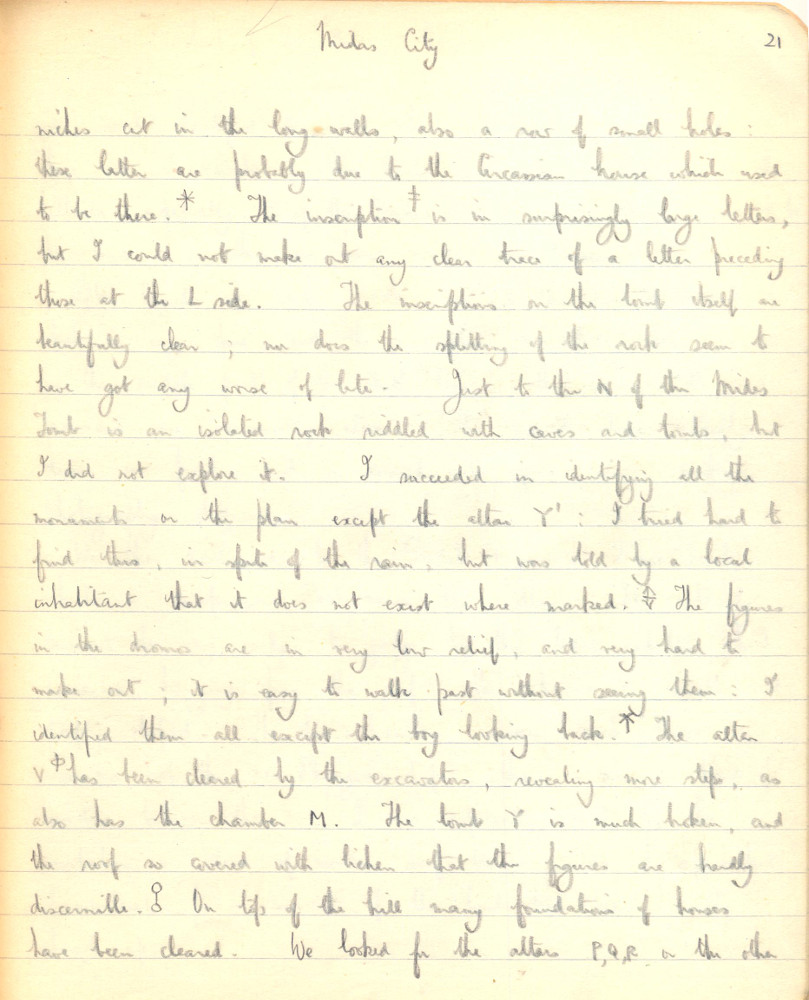 Midas City
21
niches cut in the long walls, also a row of small holes :
these latter are probably due to the Circassian house which used
to be there.* The inscription ‡ is in surprisingly large letters,
but I could not make out any clear trace of a letter preceding
those at the L side. The inscriptions on the tomb itself are
beautifully clear ; nor does the splitting of the rock seem to
have got any worse of late. Just to the N of the Midas
Tomb is an isolated rock riddled with caves and tombs, but
I did not explore it. I succeeded in identifying all the
monuments on the plan except the altar Y' : I tried hard to
find this, in spite of the rain, but was told by a local
inhabitant that it does not exist where marked. The figures
in the dromos are in very low relief, and very hard to
make out ; it is easy to walk past without seeing them : I
identified them all except the boy looking back.* The altar
V has been cleared by the excavators, revealing more steps, as
also has the chamber M. The tomb Y is much broken, and
the roof so covered with lichen that the figures are hardly
discernible. On top of the hill many foundations of houses
have been cleared. We looked for the altars P,Q,R on the other